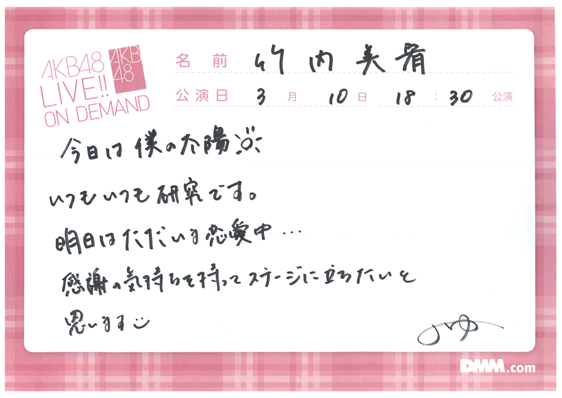 AKB48
LIVE!!
ON DEMAND
AKB
48
名前 竹内美宥
公演日 3月10日 18:30 公演
今日は僕の太陽
いつもいつも研究です。
明日はただいま恋愛中…
感謝の気持ちを持ってステージに立ちたいと
思います
みゆ
DMM.com